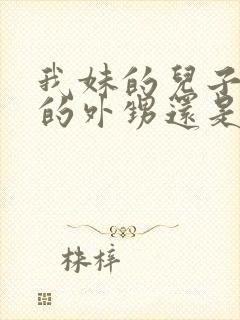 我妹的兒子
的外甥還是
株梓